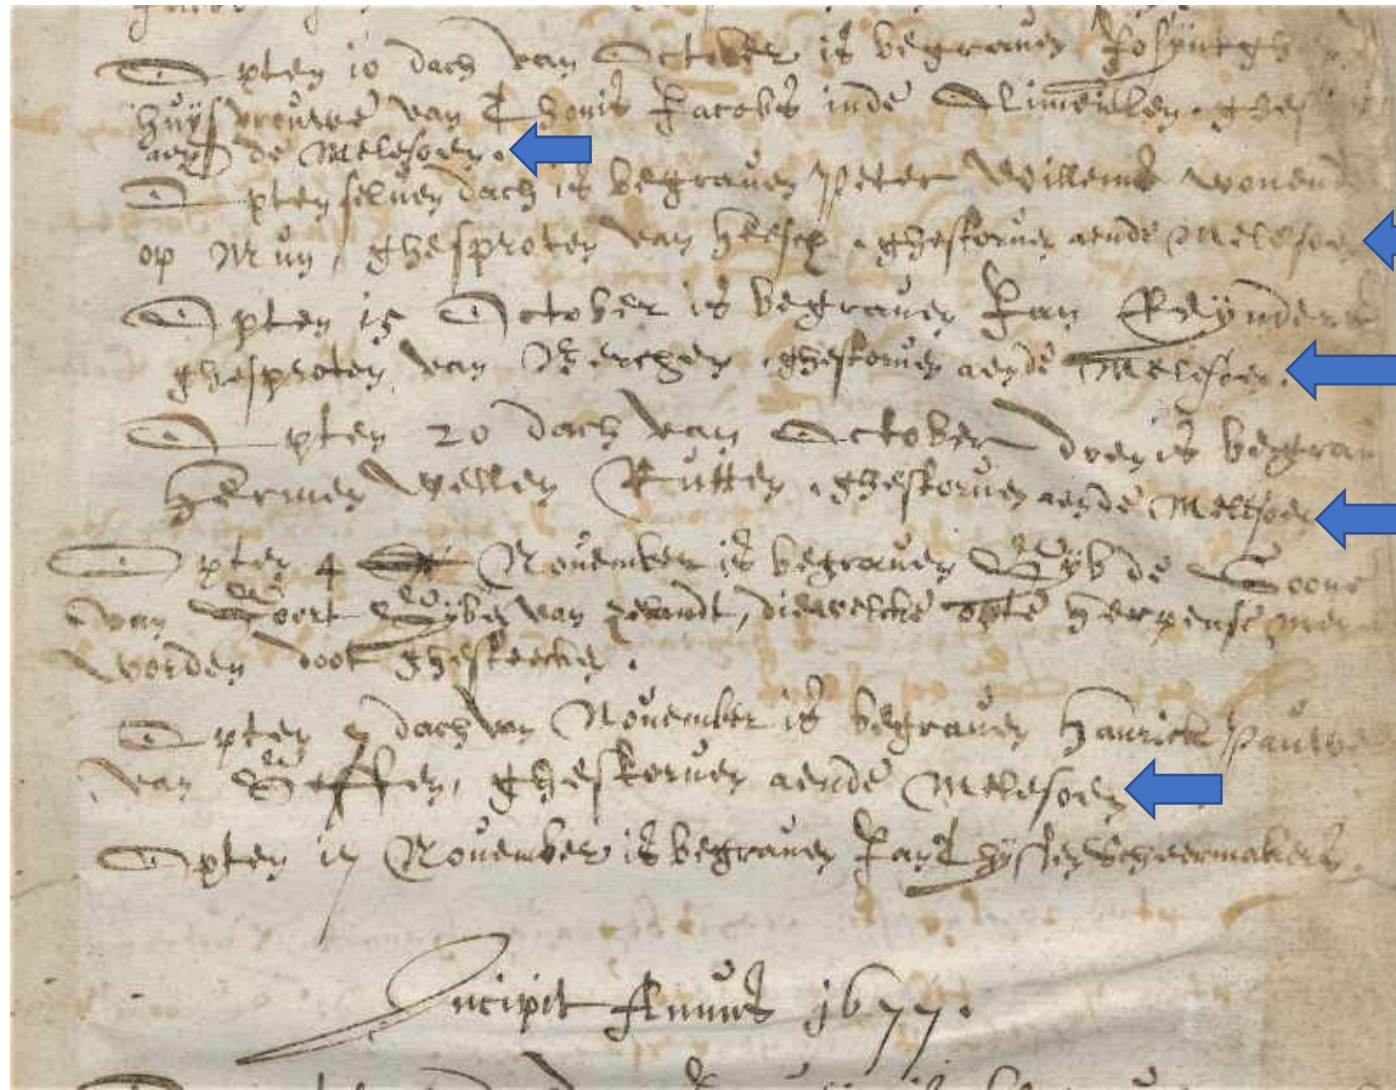 Opten 10 dach van October is begraven
huysvrouwe van Thonis Jacobs inde
aen de Melesoen.
Opten selven dach is begraven Peter Willems wonende
op Mun, ghesproten van Heesch, ghestorven aende Melesoen
Opten 15 October is begraven Jan Reynders
ghesproten van Berchen, ghestorven aende Melesoen.
Opten 20 dach van October is begraven
Hermen Wellen Rutten, ghestorven aende Melesoen
Opten 4 November is begraven Gyb de Soone
van Goort Gyben van, diewelcke opte Herpense
worden doot ghesteecken.
Opten dach van November is begraven Hanrick Pauwe
van Geffen, ghestorven aende Melesoen
Opten 17 November is begraven Jan Thyssen Scheermakers.
Incipit Annus 1677.